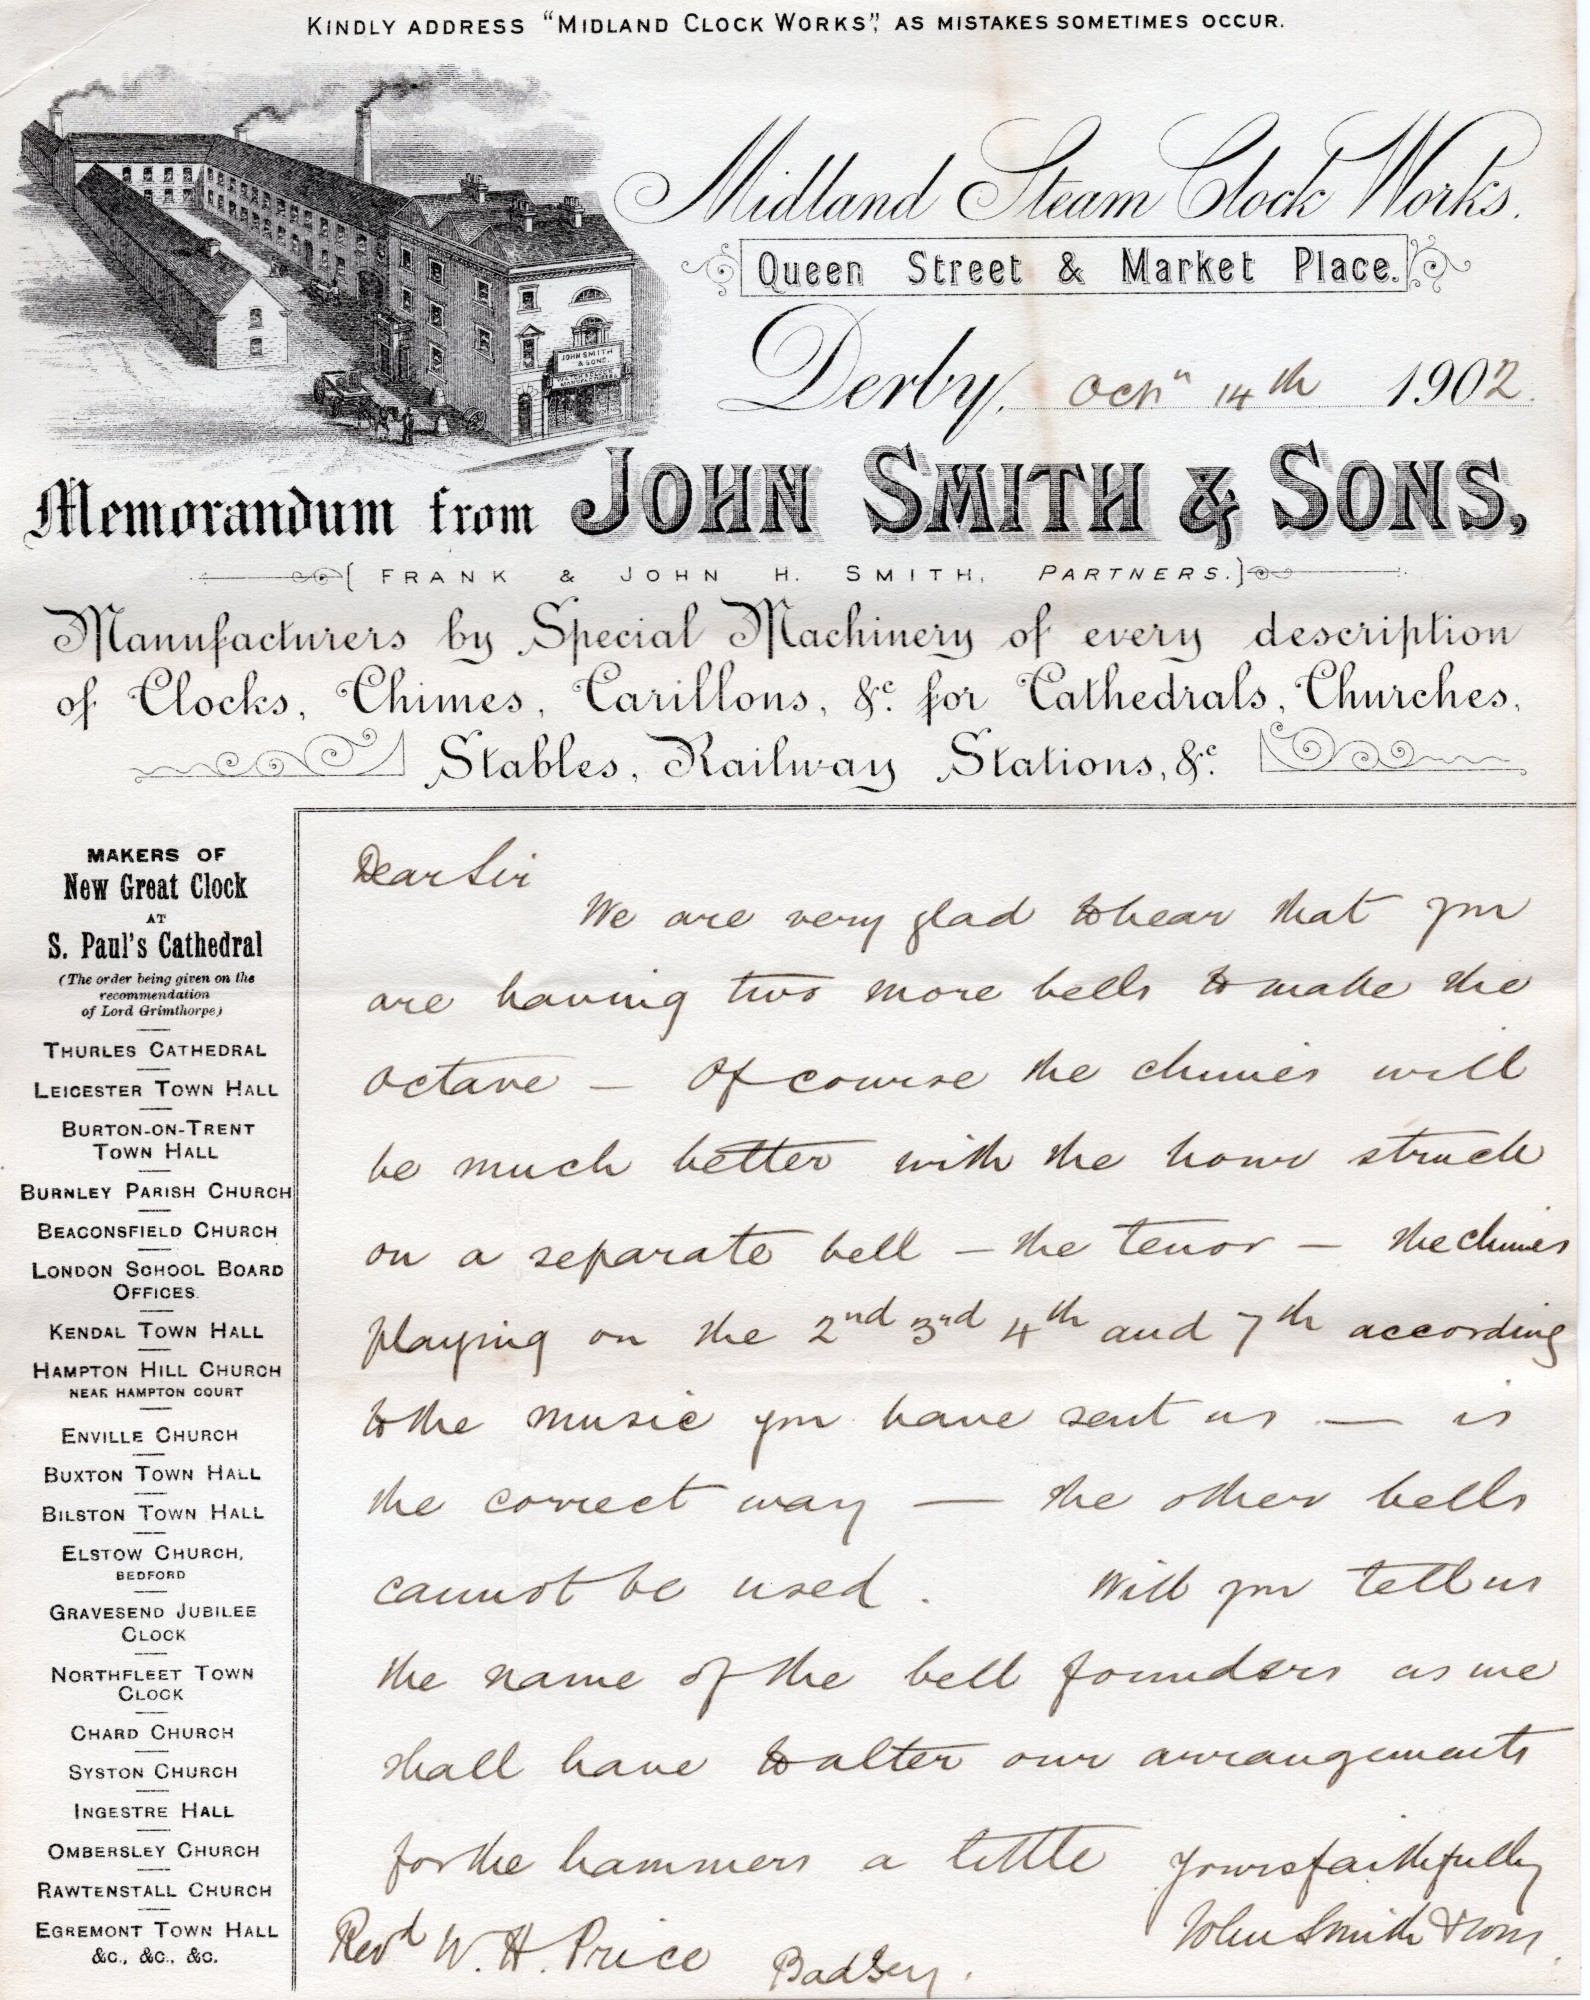 KINDLY ADDRESS "MIDLAND CLOCK WORKS", AS MISTAKES SOMETIMES OCCUR.
Midland Steam Clock Works.
Queen Street & Market Place.
JOHN SMITH
& SONS.
Derby, Octr 14th 1902.
Memorandum from JOHN SMITH & SONS,
(FRANK & JOHN H. SMITH, PARTNERS.)
Manufacturers by Special Machinery of every description
of Clocks, Chimes, Carillons, &c. for Cathedrals, Churches,
Stables, Railway Stations, &c.
MAKERS OF
New Great Clock
AT
S. Paul's Cathedral
(The order being given on the
recommendation
of Lord Grimthorpe)
THURLES CATHEDRAL
LEICESTER TOWN HALL
BURTON-ON-TRENT
TOWN HALL
BURNLEY PARISH CHURCH
BEACONSFIELD CHURCH
LONDON SCHOOL BOARD
OFFICES.
KENDAL TOWN HALL
HAMPTON HILL CHURCH
NEAR HAMPTON COURT
ENVILLE CHURCH
BUXTON TOWN HALL
BILSTON TOWN HALL
ELSTOW CHURCH,
BEDFORD
GRAVESEND JUBILEE
CLOCK
NORTHFLEET TOWN
CLOCK
CHARD CHURCH
SYSTON CHURCH
INGESTRE HALL
OMBERSLEY CHURCH
RAWTENSTALL CHURCH
EGREMONT TOWN HALL
&c., &c., &c.
Dear Sir
We are very glad to hear that you
are having two more bells to make the
octave — Of course the chimes will
be much better with the hour struck
on a separate bell — the tenor — the chimes
playing on the 2nd 3rd 4th and 7th according
to the music you have sent us — is
the correct way — the other bells
cannot be used. Will you tell us
the name of the bell founders as we
shall have to alter our arrangements
for the hammers a little
Yours faithfully
John Smith & Sons.
Revd W. H. Price Badsey.